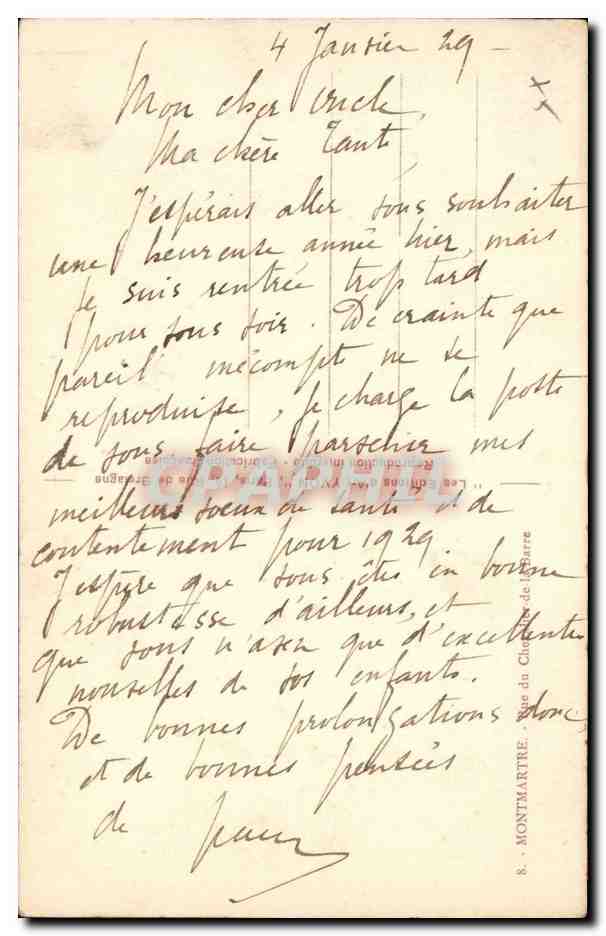 4 Janvier 29 -
Mon cher oncle,
Ma chère Tante,
J'espérais aller vous souhaiter
une heureuse année hier, mais
je suis rentrée trop tard
pour vous voir. De crainte que
pareil mécompte ne se
reproduise, je charge la poste
de vous faire parvenir mes
meilleurs voeux de santé et de
contentement pour 1929
J'espère que vous êtes en bonne
robustesse d'ailleurs, et
que vous n'avez que d'excellentes
nouvelles de vos enfants.
De bonnes prolongations donc,
et de bonnes pensées
de
"Les Editions d'Art YVON", Paris, Rue de Bretagne
Reproduction interdite - Fabrication Française
8. - MONTMARTRE. - Rue du Chevalier de la Barre
CPAPHIL